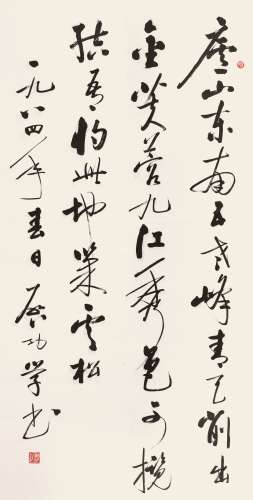 廬山东南五老峰青天削出
金芙蓉九江秀色可攬
結吾将此地巢雲松
一九八四年春日启功学书